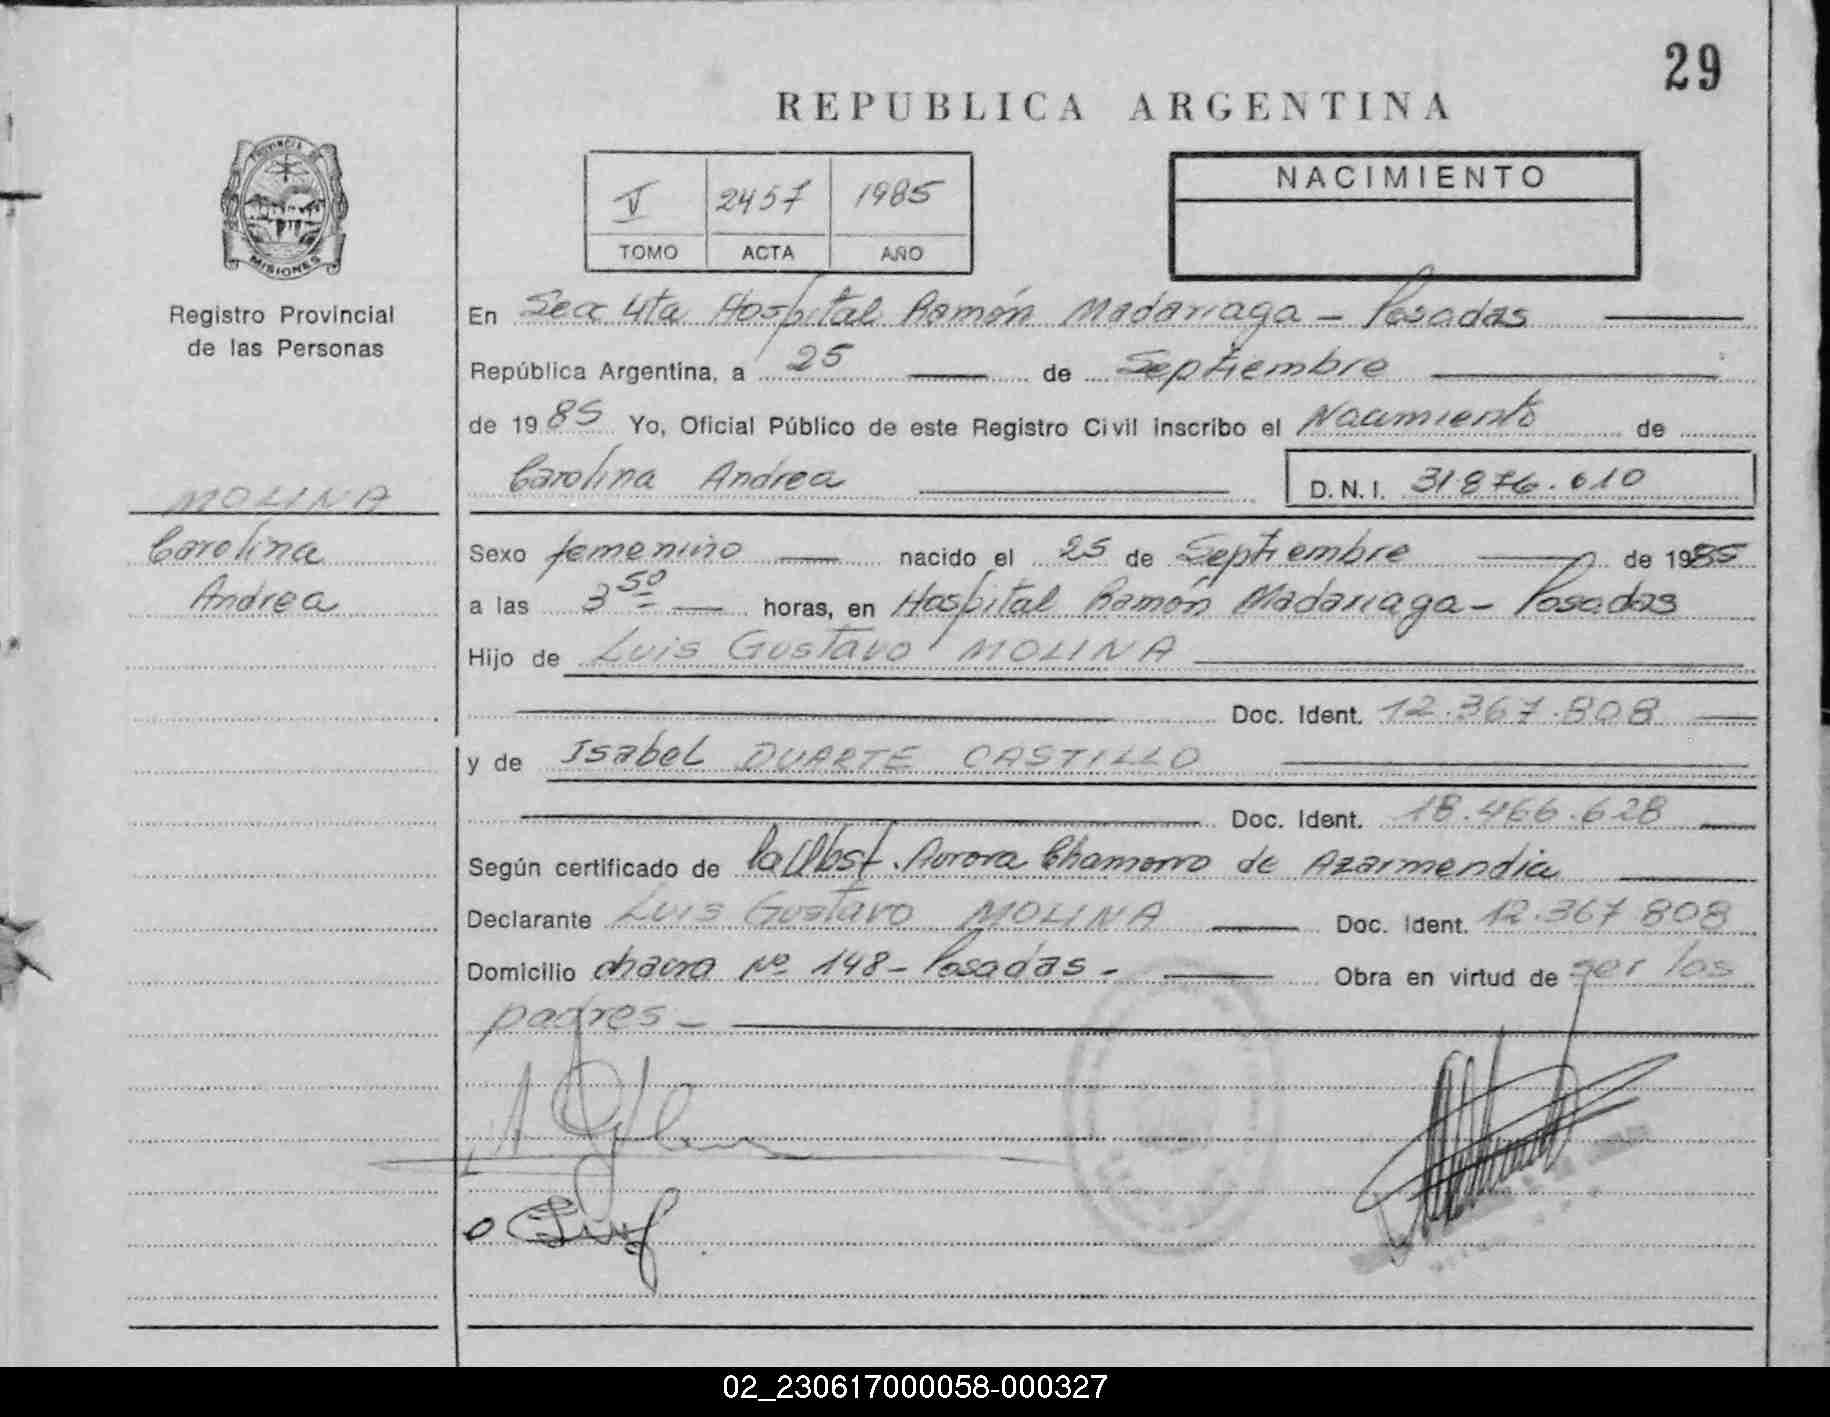 29
REPUBLICA ARGENTINA
PROVINCIA DE
MISIONES
Registro Provincial
de las Personas
V 2457 1985
TOMO ACTA AÑO
NACIMIENTO
En Secc 4ta Hospital Ramón Madariaga - Posadas
República Argentina, a 25 de Septiembre
de 1985 Yo, Oficial Público de este Registro Civil inscribo el Nacimiento de
Carolina Andrea D.N.I. 31.876.010
MOLINA
Carolina
Andrea
Sexo femenino nacido el 25 de Septiembre de 1985
a las 3 50 horas, en Hospital Ramón Madariaga - Posadas
Hijo de Luis Gustavo MOLINA
Doc. Ident. 12.367.808
y de Isabel DUARTE CASTILLO
Doc. Ident. 18.466.628
Según certificado de la Obst. Aurora Chamorro de Azarmendia
Declarante Luis Gustavo MOLINA Doc. Ident. 12.367.808
Domicilio chacra Nº 148 - Posadas - Obra en virtud de ser los
padres -
02_230617000058-000327